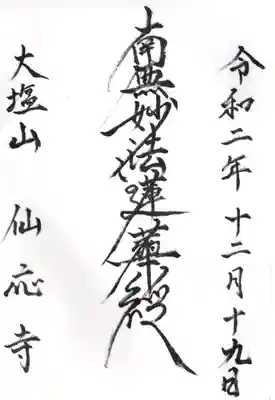 令和二年十二月十九日
南無妙法蓮華経
大塩山 仙応寺